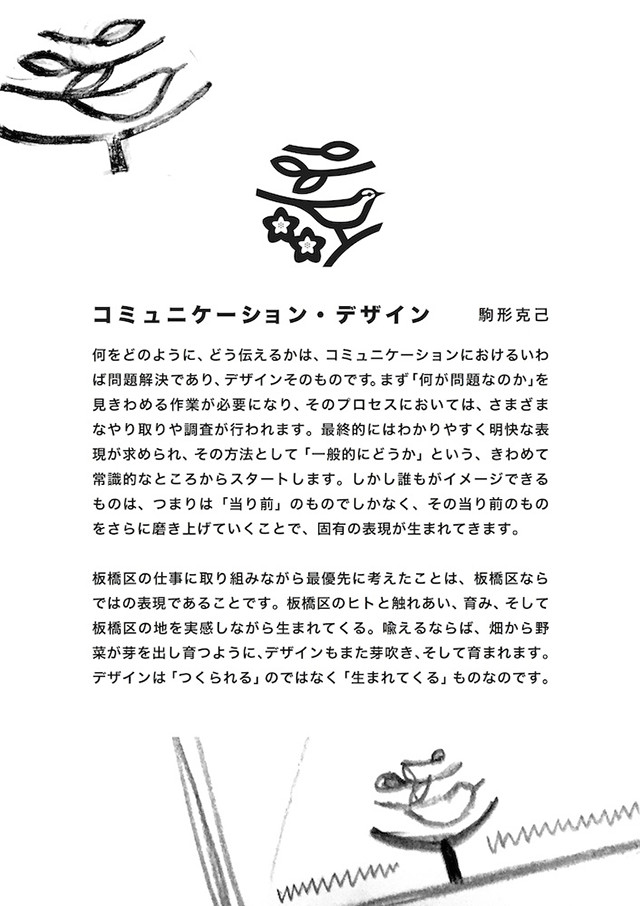 コミュニケーション・デザイン 駒形克己
何をどのように、どう伝えるかは、コミュニケーションにおけるいわ
ば問題解決であり、デザインそのものです。まず「何が問題なのか」を
見きわめる作業が必要になり、そのプロセスにおいては、さまざま
なやり取りや調査が行われます。最終的にはわかりやすく明快な表
現が求められ、その方法として「一般的にどうか」という、きわめて
常識的なところからスタートします。しかし誰もがイメージできる
ものは、つまりは「当り前」のものでしかなく、その当り前のもの
をさらに磨き上げていくことで、固有の表現が生まれてきます。
板橋区の仕事に取り組みながら最優先に考えたことは、板橋区なら
ではの表現であることです。板橋区のヒトと触れあい、育み、そして
板橋区の地を実感しながら生まれてくる。喩えるならば、畑から野
菜が芽を出し育つように、デザインもまた芽吹き、そして育まれます。
デザインは「つくられる」のではなく「生まれてくる」ものなのです。